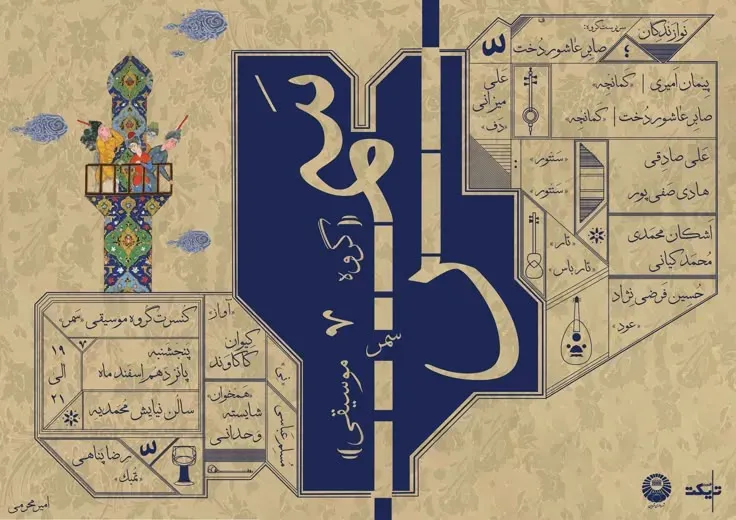 نوازندگان
سرپرست گروه:
صابر عاشوردخت
پیمان امیری | «کمانچه»
صابر عاشوردخت | «کمانچه»
علی
میزانی
«دف»
علی صادقی
«سنتور»
هادی صفی پور
«سنتور»
اشکان محمدی
«تار»
محمد کیانی
«تار باس»
حسین فرضی نژاد
«عود»
سمر
(گروه
موسیقی)
سمر
«آواز»
کیوان
کاکاوند
«نی»
مسلم عباسی
«همخوان»
شایسته
وحدانی
کنسرت گروه موسیقی «سمر»
پنجشنبه
پانزدهم اسفند ماه
۱۹
الی
۲۱
سالن نیایش محمدیه
رضا پناهی
«تمبک»
امیر محرمی
تیکت